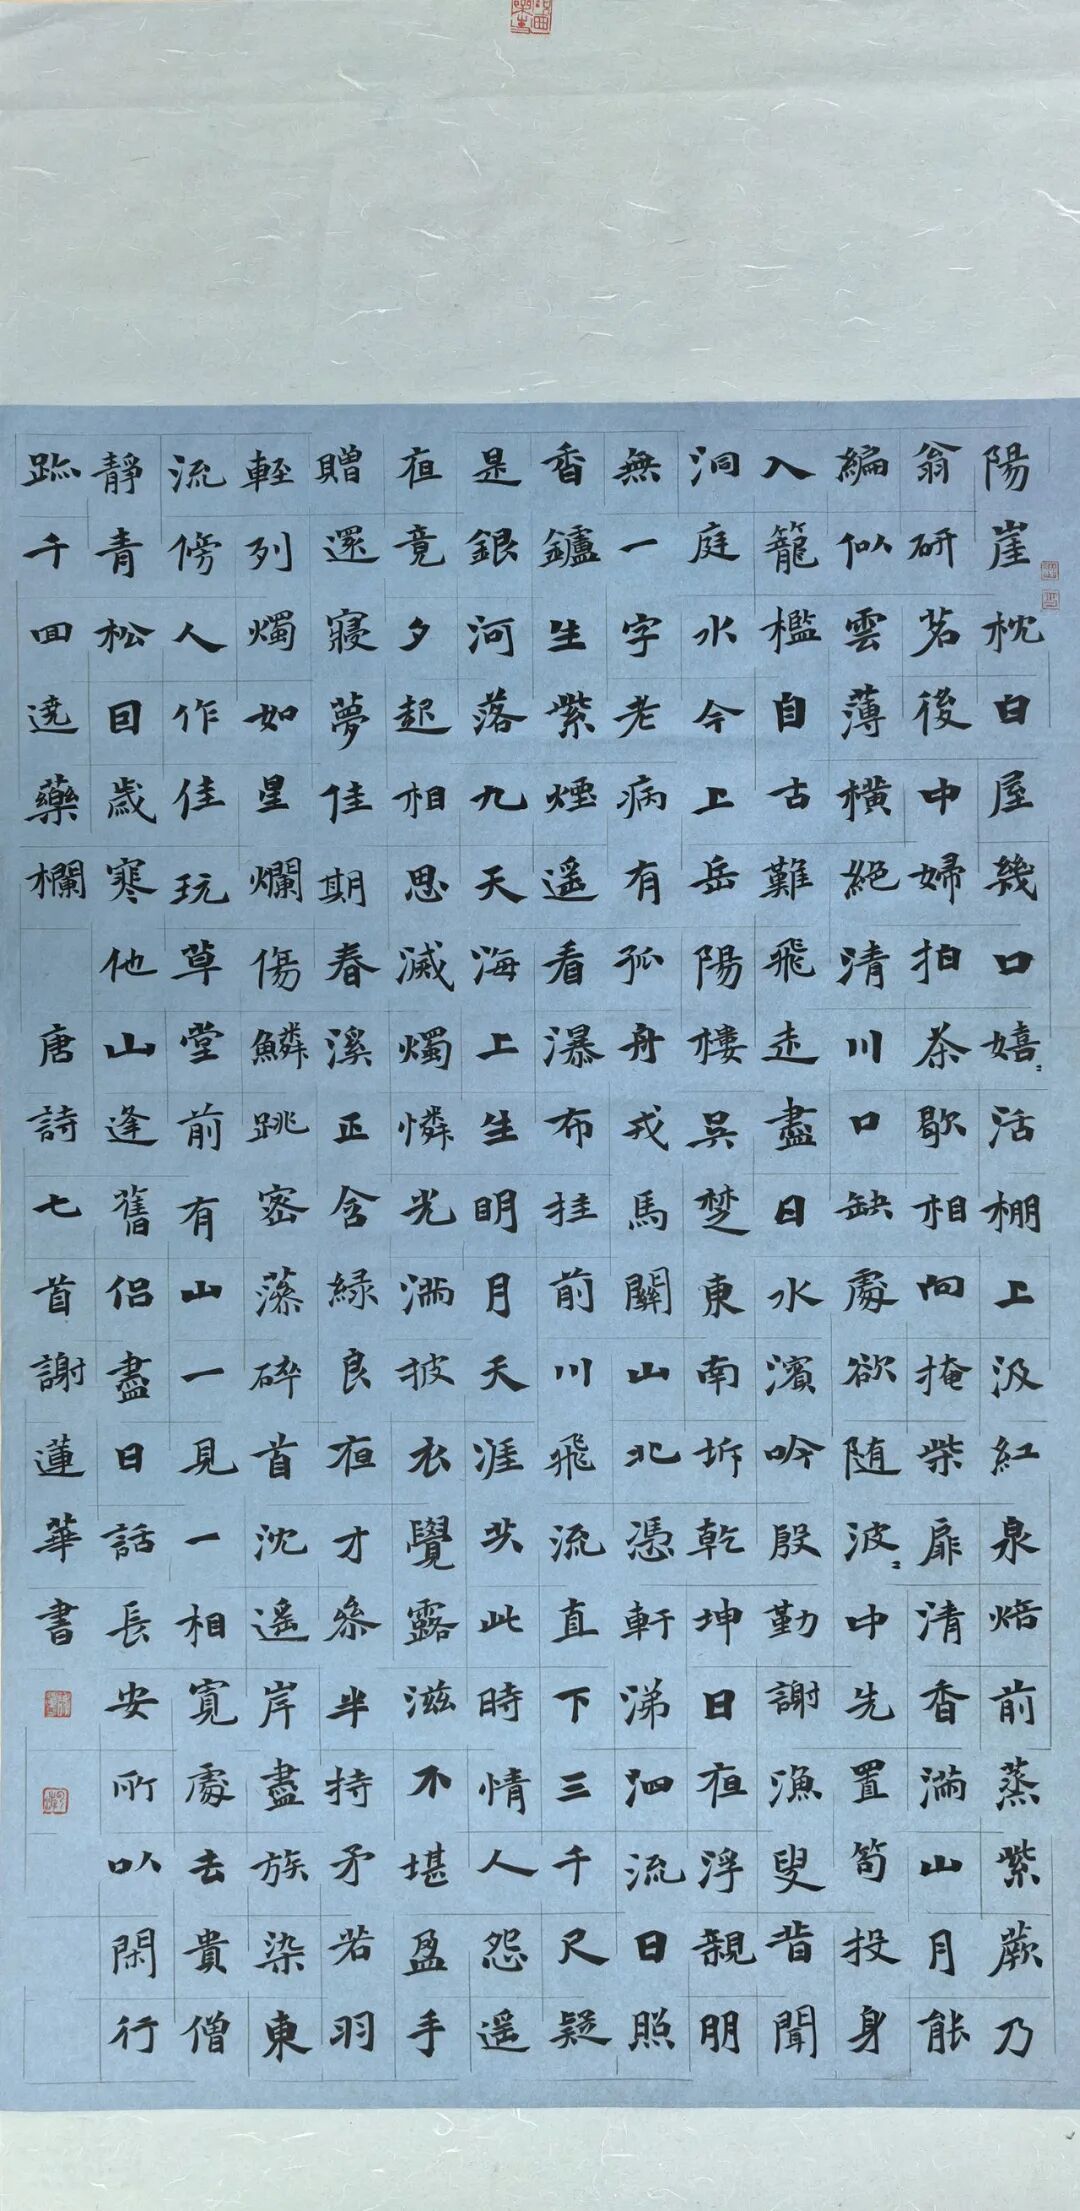 陽崖枕白屋幾口嬉〻活棚上汲紅泉焙前蒸紫蕨乃
翁研茗後中婦拍茶歇相向掩柴扉清香滿山月能
編似雲薄橫絕清川口缺處欲随波〻中先置笱投身
入籠檻自古難飛走盡日水濱吟殷勤謝漁叟昔聞
洞庭水今上岳陽樓吳楚東南坼乾坤日夜浮親朋
無一字老病有孤舟戎馬關山北憑軒涕泗流日照
香鑪生紫煙遥看瀑布挂前川飛流直下三千尺疑
是銀河落九天海上生明月天涯共此時情人怨遥
夜竟夕起相思滅燭憐光滿披衣覺露滋不堪盈手
贈還寢夢佳期春溪正含綠良夜才參半持矛若羽
輕列燭如星爛傷鱗跳密藻碎首沈遥岸盡族染東
流傍人作佳玩草堂前有山一見一相寬處去貴僧
靜青松回歲寒他山逢舊侶盡日話長安所以閑行
跡千回遶藥欄 唐詩七首謝蓮華書